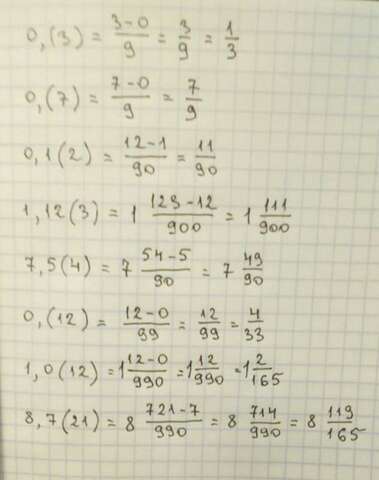 0,(3) = \frac{3-0}{9} = \frac{3}{9} = \frac{1}{3}
0,(7) = \frac{7-0}{9} = \frac{7}{9}
0,1(2) = \frac{12-1}{90} = \frac{11}{90}
1,12(3) = 1 \frac{123-12}{900} = 1 \frac{111}{900}
7,5(4) = 7 \frac{54-5}{90} = 7 \frac{49}{90}
0,(12) = \frac{12-0}{99} = \frac{12}{99} = \frac{4}{33}
1,0(12) = 1 \frac{12-0}{990} = 1 \frac{12}{990} = 1 \frac{2}{165}
8,7(21) = 8 \frac{721-7}{990} = 8 \frac{714}{990} = 8 \frac{119}{165}